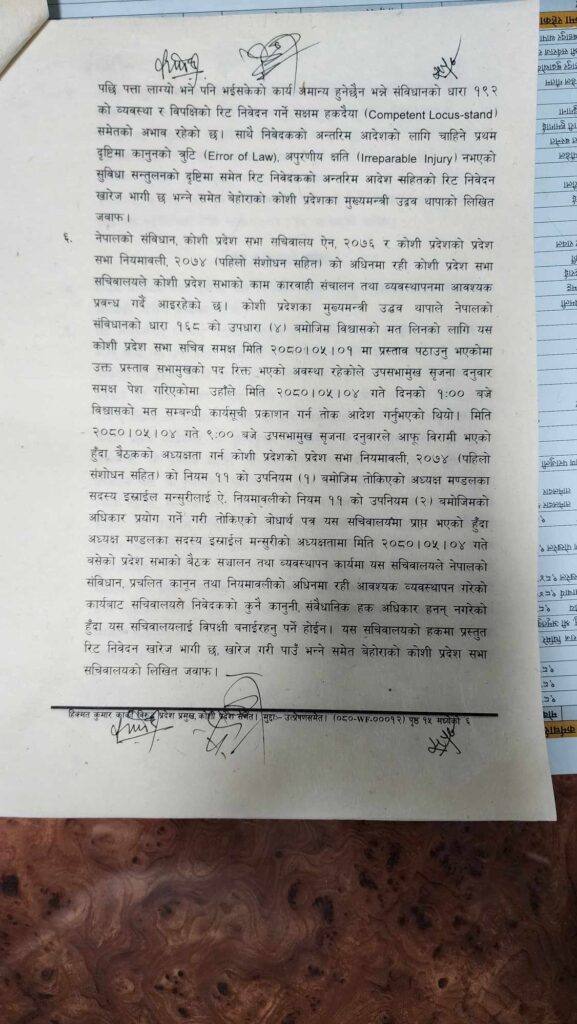 पछि पत्ता लाग्यो भने पनि भईसकेको कार्य अमान्य हुनेछैन भन्ने संविधानको धारा १९२
को व्यवस्था र विपक्षिको रिट निवेदन गर्ने सक्षम हकदैया (Competent Locus-stand)
समेतको अभाव रहेको छ। साथै निवेदकको अन्तरिम आदेशको लागि चाहिने प्रथम
दृष्टिमा कानुनको त्रुटि (Error of Law), अपुरणीय क्षति (Irreparable Injury) नभएको
सुविधा सन्तुलनको दृष्टिमा समेत रिट निवेदकको अन्तरिम आदेश सहितको रिट निवेदन
खारेज भागी छ भन्ने समेत बेहोराको कोशी प्रदेशका मुख्यमन्त्री उद्धव थापाको लिखित
जवाफ।
६. नेपालको संविधान, कोशी प्रदेश सभा सचिवालय ऐन, २०७६ र कोशी प्रदेशको प्रदेश
सभा नियमावली, २०७४ (पहिलो संशोधन सहित) को अधिनमा रही कोशी प्रदेश सभा
सचिवालयले कोशी प्रदेश सभाको काम कारवाही संचालन तथा व्यवस्थापनमा आवश्यक
प्रवन्ध गर्दै आइरहेको छ। कोशी प्रदेशका मुख्यमन्त्री उद्धव थापाले नेपालको
संविधानको धारा १६८ को उपधारा (४) बमोजिम विश्वासको मत लिनको लागि यस
कोशी प्रदेश सभा सचिव समक्ष मिति २०८०।०५।०१ मा प्रस्ताव पठाउनु भएकोमा
उक्त प्रस्ताव सभामुखको पद रिक्त भएको अवस्था रहेकोले उपसभामुख सृजना दनुवार
समक्ष पेश गरिएकोमा उहाँले मिति २०८०।०५।०४ गते दिनको १:०० बजे
विश्वासको मत सम्बन्धी कार्यसूची प्रकाशन गर्न तोक आदेश गर्नुभएको थियो। मिति
२०८०।०५।०४ गते ९:०० बजे उपसभामुख सृजना दनुवारले आफू विरामी भएको
हुँदा बैठकको अध्यक्षता गर्न कोशी प्रदेशको प्रदेश सभा नियमावली, २०७४ (पहिलो
संशोधन सहित) को नियम ११ को उपनियम (१) बमोजिम तोकिएको अध्यक्ष मण्डलका
सदस्य इस्राईल मन्सुरीलाई ऐ. नियमावलीको नियम ११ को उपनियम (२) बमोजिमको
अधिकार प्रयोग गर्ने गरी तोकिएको बोधार्थ पत्र यस सचिवालयमा प्राप्त भएको हुँदा
अध्यक्ष मण्डलका सदस्य इस्राईल मन्सुरीको अध्यक्षतामा मिति २०८०।०५।०४ गते
बसेको प्रदेश सभाको बैठक सञ्चालन तथा व्यवस्थापन कार्यमा यस सचिवालयले नेपालको
संविधान, प्रचलित कानून तथा नियमावलीको अधिनमा रही आवश्यक व्यवस्थापन गरेको
कार्यबाट सचिवालयले निवेदकको कुनै कानुनी, संबैधानिक हक अधिकार हनन् नगरेको
हुँदा यस सचिवालयलाई विपक्षी बनाईरहनु पर्ने होईन। यस सचिवालयको हकमा प्रस्तुत
रिट निवेदन खारेज भागी छ, खारेज गरी पाउँ भन्ने समेत बेहोराको कोशी प्रदेश सभा
सचिवालयको लिखित जवाफ।
हिक्मत कुमार कार्की विरुद्ध प्रदेश प्रमुख, कोशी प्रदेश समेत। मुद्दाः- उत्प्रेषणसमेत। (०८०-WF-०००१२) पृष्ठ १५ मध्येको ६